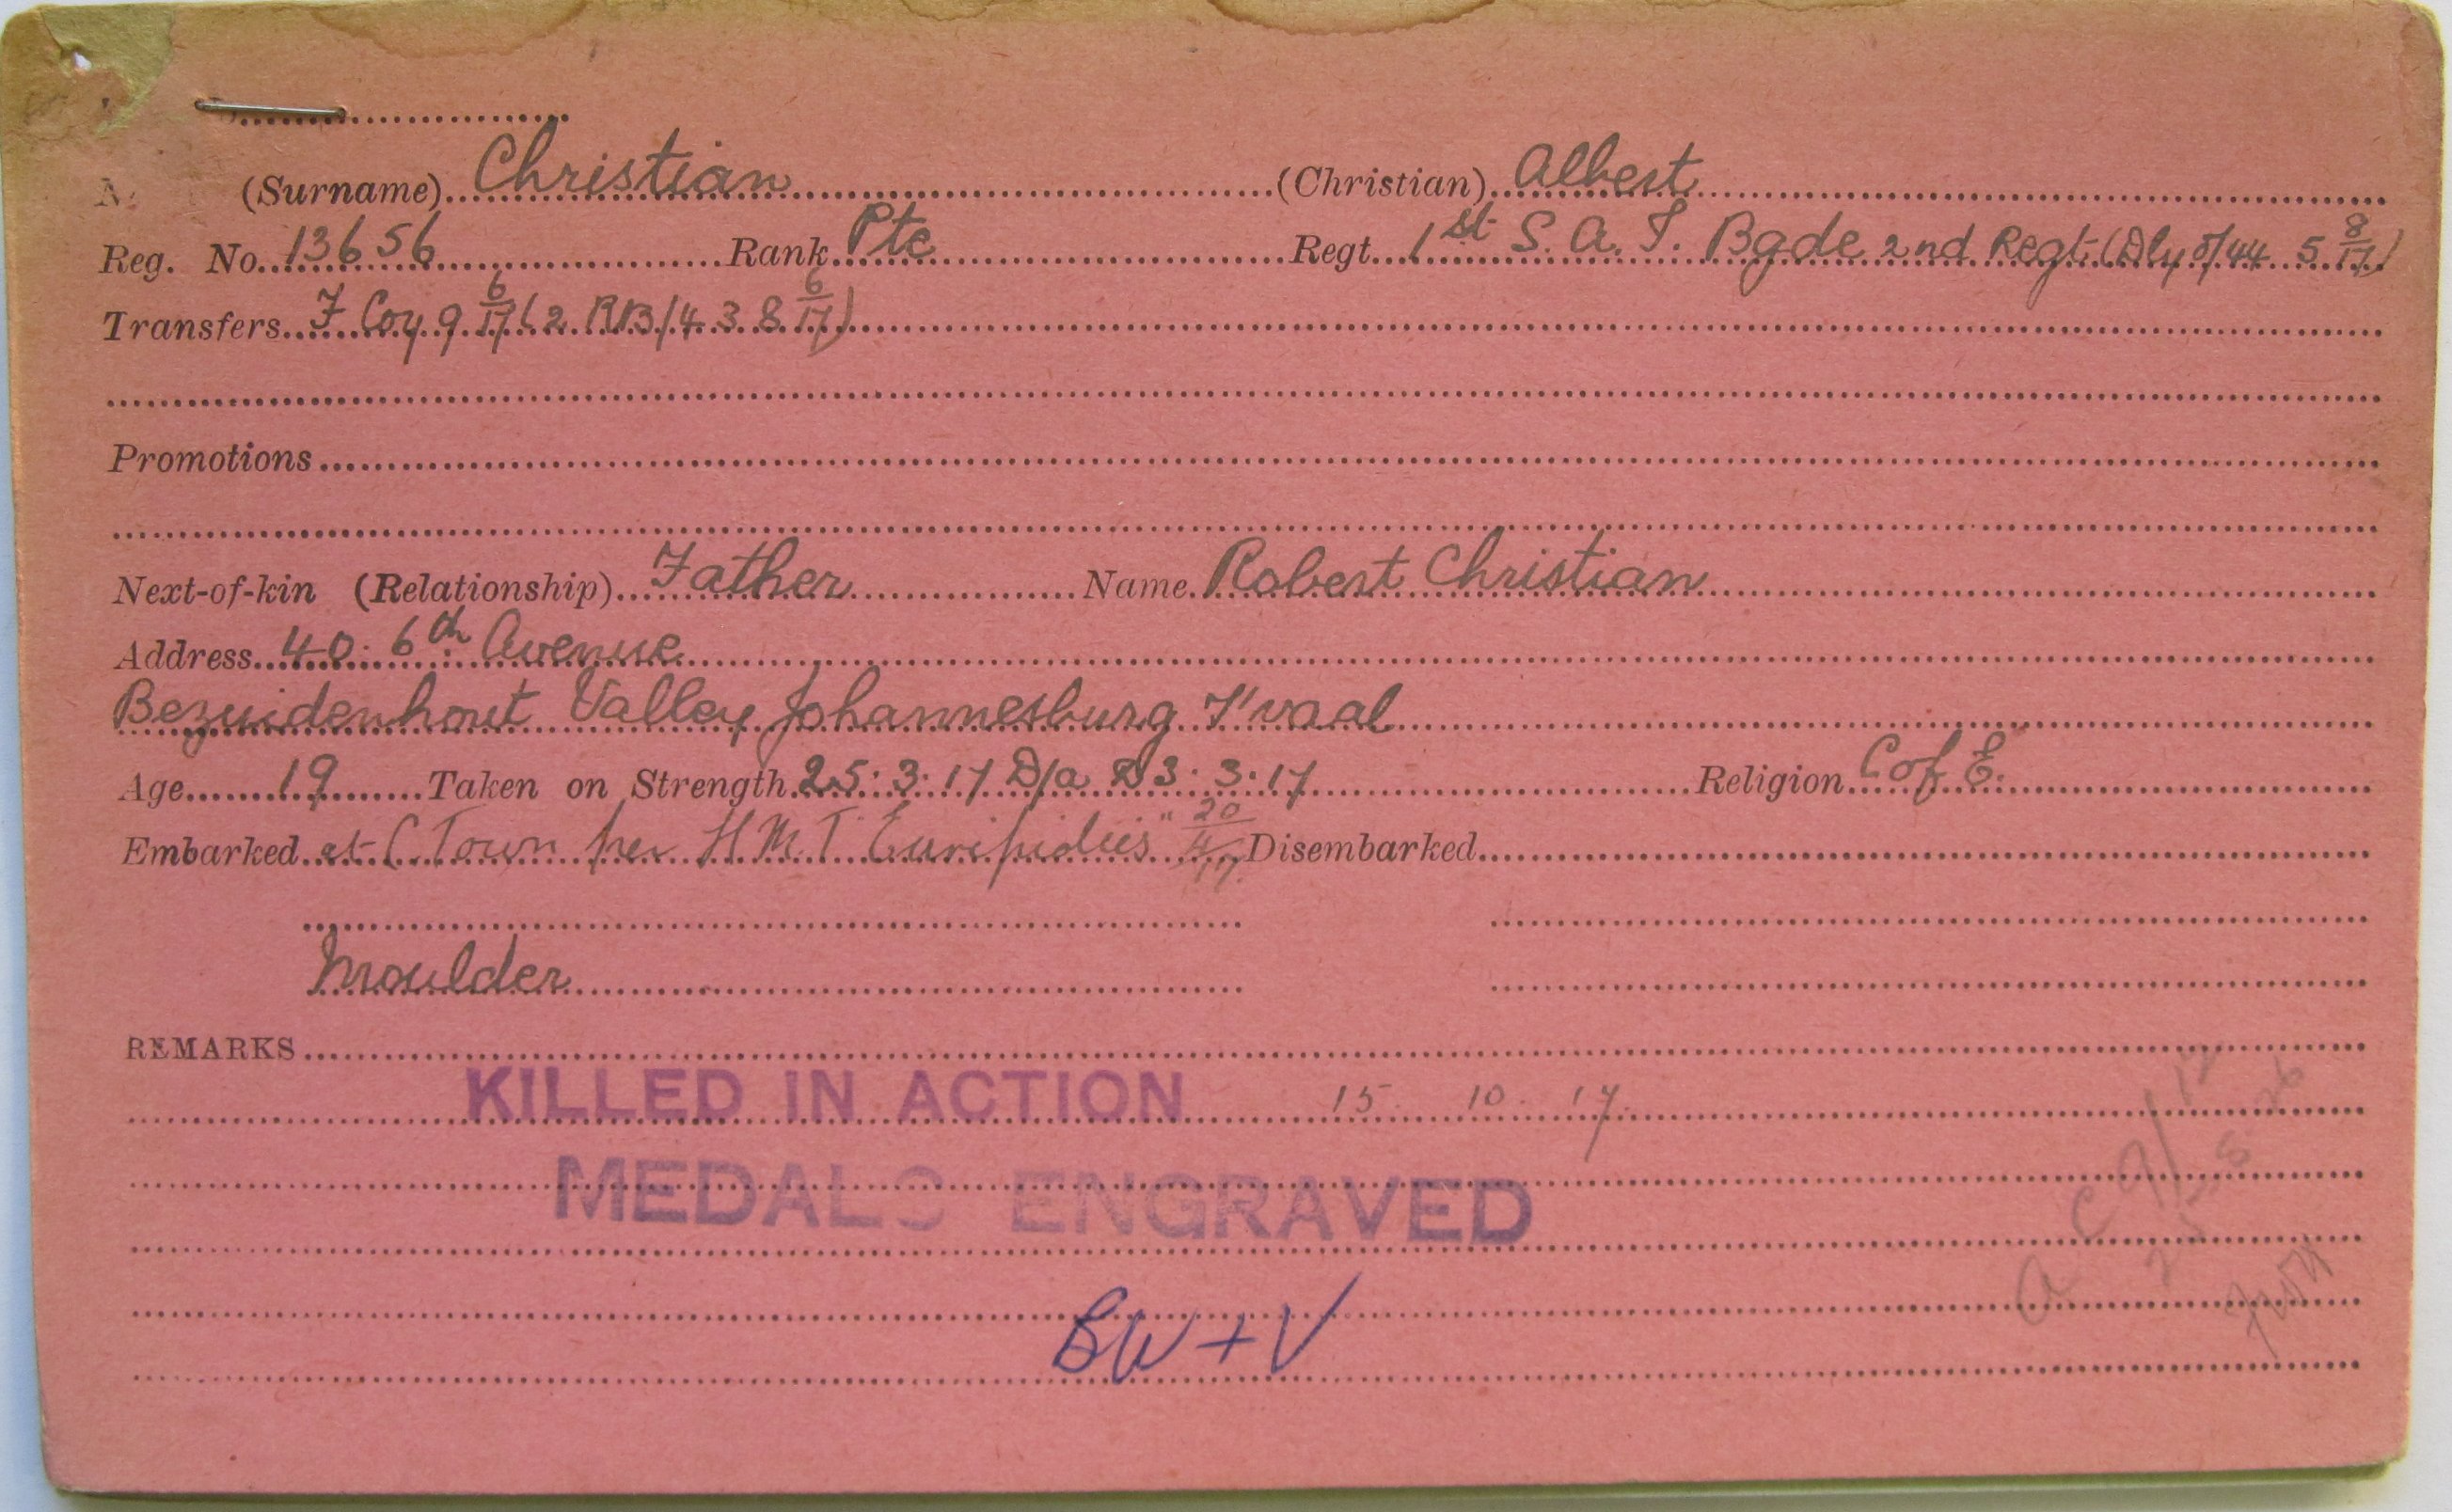 (Surname) Christian (Christian) Albert
Reg. No. 13656 Rank Pte Regt. 1st S. A. I. Bgde 2nd Regt (Dly o/44 5 8/17)
Transfers F Coy 9 6/17 (2 RB/4 3 8 6/17)
Promotions
Next-of-kin (Relationship) Father Name Robert Christian
Address 40. 6th Avenue
Bezuidenhout Valley Johannesburg T'vaal
Age 19 Taken on Strength 25.3.17 D/a 23.3.17 Religion C of E.
Embarked at C Town per H.M.T. Euripidies" 20/4/17 Disembarked
Moulder
REMARKS
KILLED IN ACTION 15. 10. 17.
MEDALS ENGRAVED
BW + V